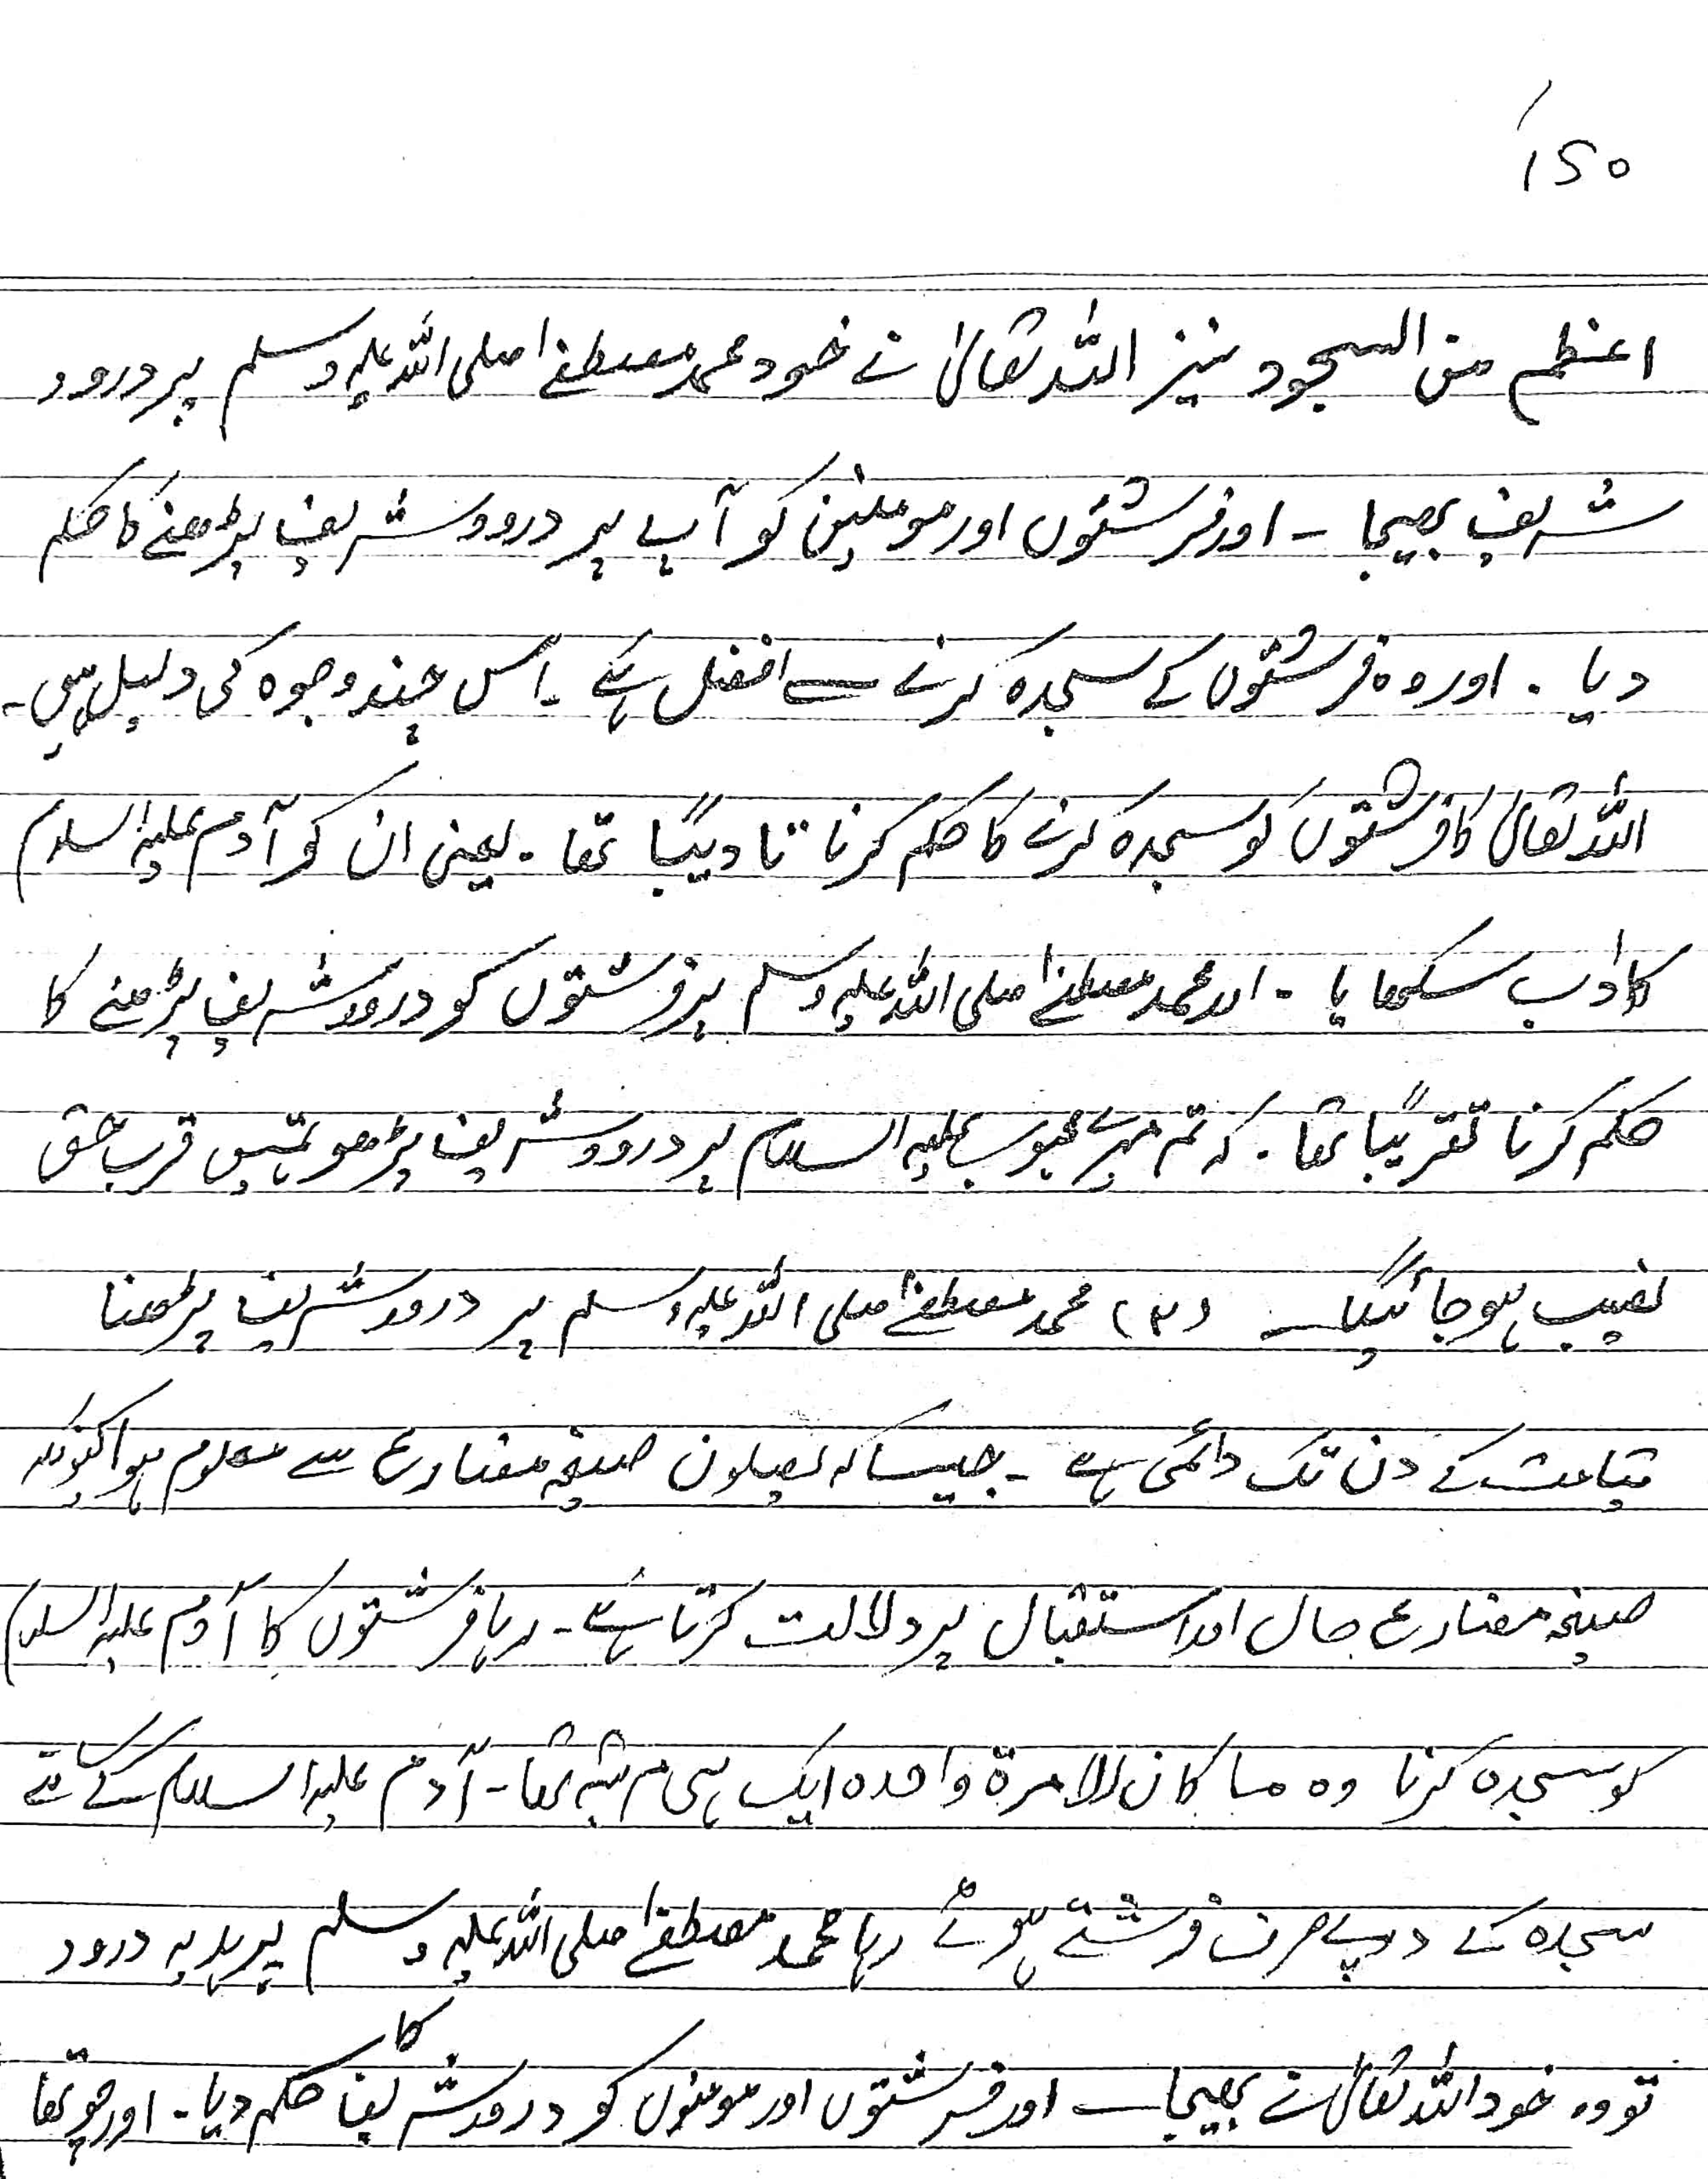 150
اعظم من السجود نیز اللہ تعالیٰ نے خود محمد مصطفےٰ صلی اللہ علیہ وسلم پر درود
شریف بھیجا - اور فرشتوں اور مومنین کو آپ پر درود شریف پڑھنے کا حکم
دیا . اور وہ فرشتوں کے سجدہ کرنے سے افضل ہے - اس چند وجوہ کی دلیل ہیں -
اللہ تعالیٰ کا فرشتوں کو سجدہ کرنے کا حکم کرنا تادیباً تھا . یعنی ان کو آدم علیہ السلام
کا ادب سکھایا - اور محمد مصطفےٰ صلی اللہ علیہ وسلم پر فرشتوں کو درود شریف پڑھنے کا
حکم کرنا تقریباً تھا . کہ تم میرے محبوب علیہ السلام پر درود شریف پڑھو تمہیں قرب حق
نصیب ہو جائیگا - (۲) محمد مصطفےٰ صلی اللہ علیہ وسلم پر درود شریف پڑھنا
قیامت کے دن تک دائمی ہے - جیسا کہ یصلون صیغہ مضارع سے معلوم ہوا کیونکہ
صیغہ مضارع حال اور استقبال پر دلالت کرتا ہے - رہا فرشتوں کا آدم علیہ السلام
کو سجدہ کرنا وہ ما کان الا مرۃ واحدہ ایک ہی مرتبہ تھا - آدم علیہ السلام کے سامنے
سجدہ کے صرف فرشتے ہوئے رہا محمد مصطفےٰ صلی اللہ علیہ وسلم پر ہدیہ درود
تو وہ خود اللہ تعالیٰ نے بھیجا - اور فرشتوں اور مومنوں کو درود شریف کا حکم دیا - اور چوتھا